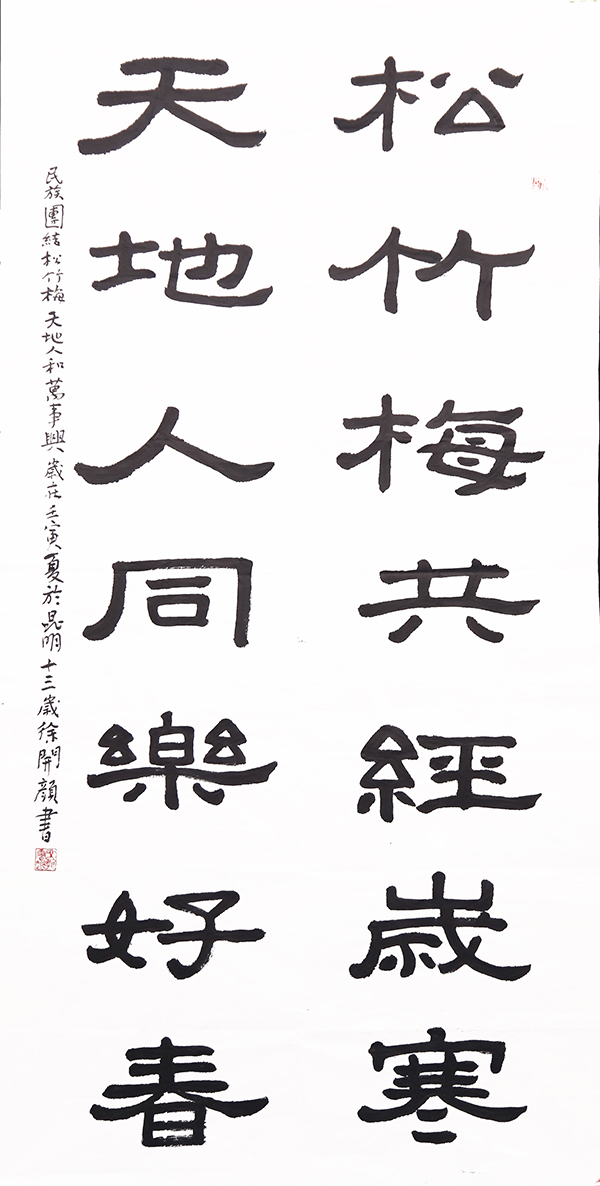 松竹梅共經歲寒
天地人同樂好春
民族團結松竹梅天地人和萬事興歲在壬寅夏於昆明十三歲徐開顏書